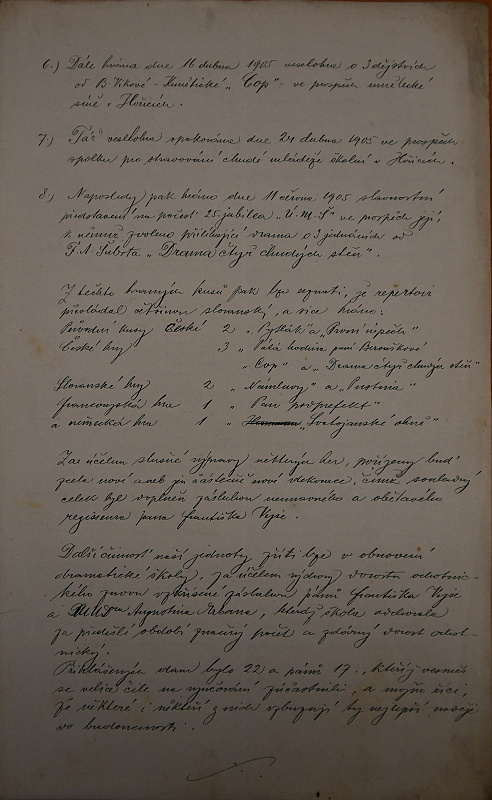 6.) Dále hrána dne 16 dubna 1905 veselohra o 3 dějstvích
od B. Vikové - Kunětické „Cop" - ve prospěch umělecké
síně v Hořicích.
7.) Táž veselohra opakována dne 24 dubna 1905 ve prospěch
spolku pro stravování chudé mládeže školní v Hořicích.
8.) Naposledy pak hráno dne 11 června 1905 slavnostní
představení na počest 25. jubilea „Ú. M. Š" ve prospěch její,
k němuž zvoleno přiléhající drama o 3 jednáních od
F. A. Šuberta „Drama čtyř chudých stěn".
Z těchto hraných kusů pak lze seznati, že repertoir
převládal většinou slovanský, a sice hráno:
Původní kusy České 2 „ a „První úspěch"
České hry 3 „Pátá hodina paní
„Cop" a „Drama čtyř chudých stěn"
Slovanské hry 2 „Námluvy" a „Pustina"
francouzská hra 1 „Pan podprefekt"
a německá hra 1 „Svatojanské ohně"
Za účelem slušné výpravy některých her, pořízeny buď
zcela nové aneb zčástečně nové dekorace, čímž souladný
celek byl doplněn zásluhou neunavného a obětavého
regisseura pana Františka Vejse.
Další činnost naší jednoty zříti lze v obnovení
dramatické školy, za účelem výchovy dorostu ochotnic-
kého znovu vzkříšené zásluhou pánů Františka Vejse
a MUDra Augustina, kterážto škola odchovala
za předešlé období značný počet a zdárný dorost ochot-
nický.
Přihlášených dam bylo 22 a pánů 17., kteříž vesměs
se velice čile na vyučování zúčastnili, a možno říci,
že některé i někteří z nich vzbuzují ty nejlepší naděje
do budoucnosti.